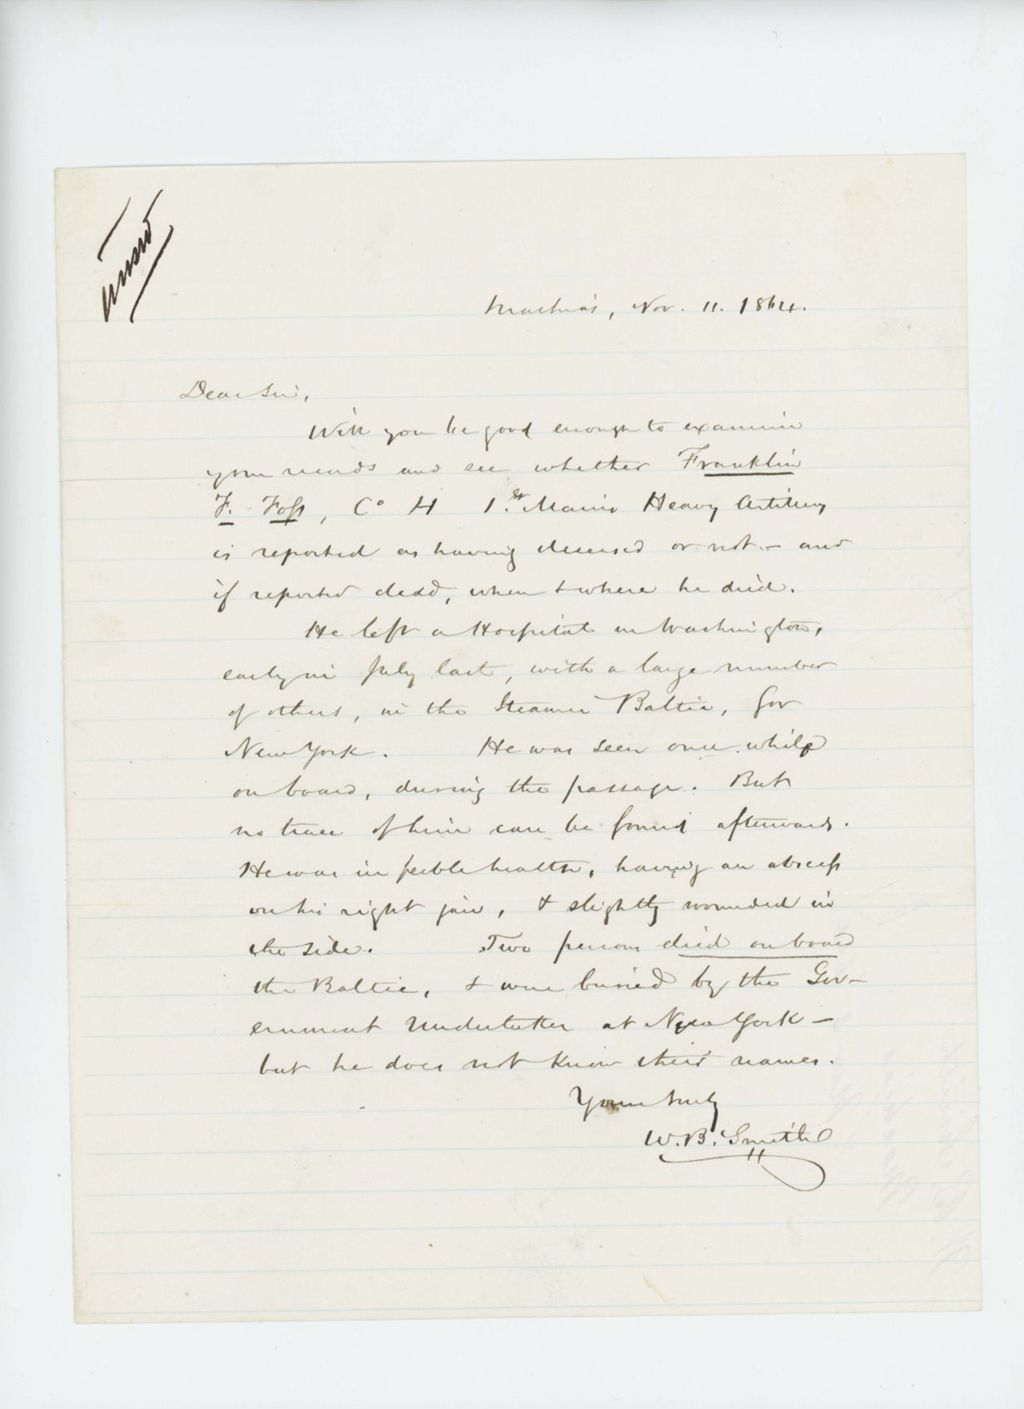 Machias, Nov. 11. 1864.
Dear Sir,
Will you be good enough to examine
your records and see whether Franklin
F. Foss, Co H 1st Maine Heavy Artillery
is reported as having deceased or not - and
if reported dead, when & where he died.
He left a Hospital in Washington,
early in July last, with a large number
of others, in the Steamer Baltic, for
New York. He was seen once while
on board, during the passage. But
no trace of him can be found afterwards.
He was in feeble health, having an abscess
on his right jaw, & slightly wounded in
the side. Two persons died on board
the Baltic, & were buried by the Gov-
ernment Undertaker at New York -
but he does not know their names.
Yours truly
W. B. Smith